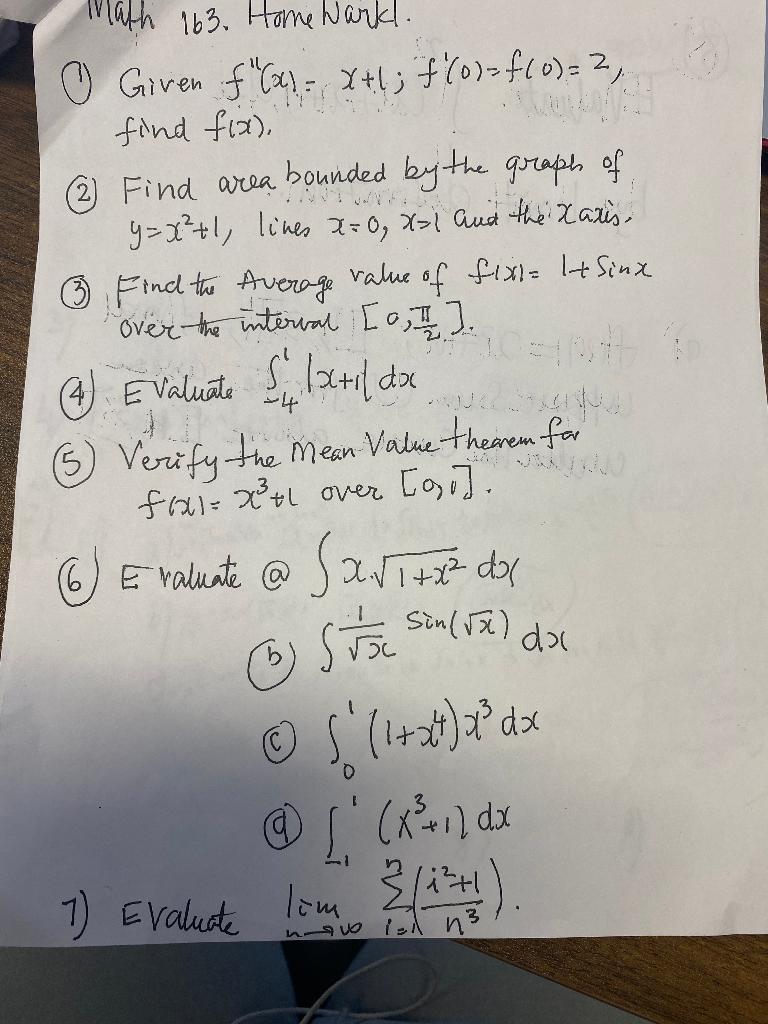 Math 163. HomeWork1.
① Given f"(x) = x+1; f'(0)=f(0)=2,
find f(x).
② Find area bounded by the graph of
y=x²+1, lines x=0, x=1 and the x axis.
③ Find the Average value of f(x)= 1+ Sinx
over the interval [0, π/2].
④ EValuate ∫₋₄¹ |x+1| dx
⑤ Verify the Mean Value theorem for
f(x)= x³+1 over [0,1].
⑥ Evaluate ⓐ ∫ x√(1+x²) dx
ⓑ ∫ 1/√x Sin(√x) dx
ⓒ ∫₀¹ (1+x⁴)x³ dx
ⓓ ∫₋₁¹ (x³+1) dx
7) Evaluate lim n→∞ Σ i=1 n ((i²+1)/n³).